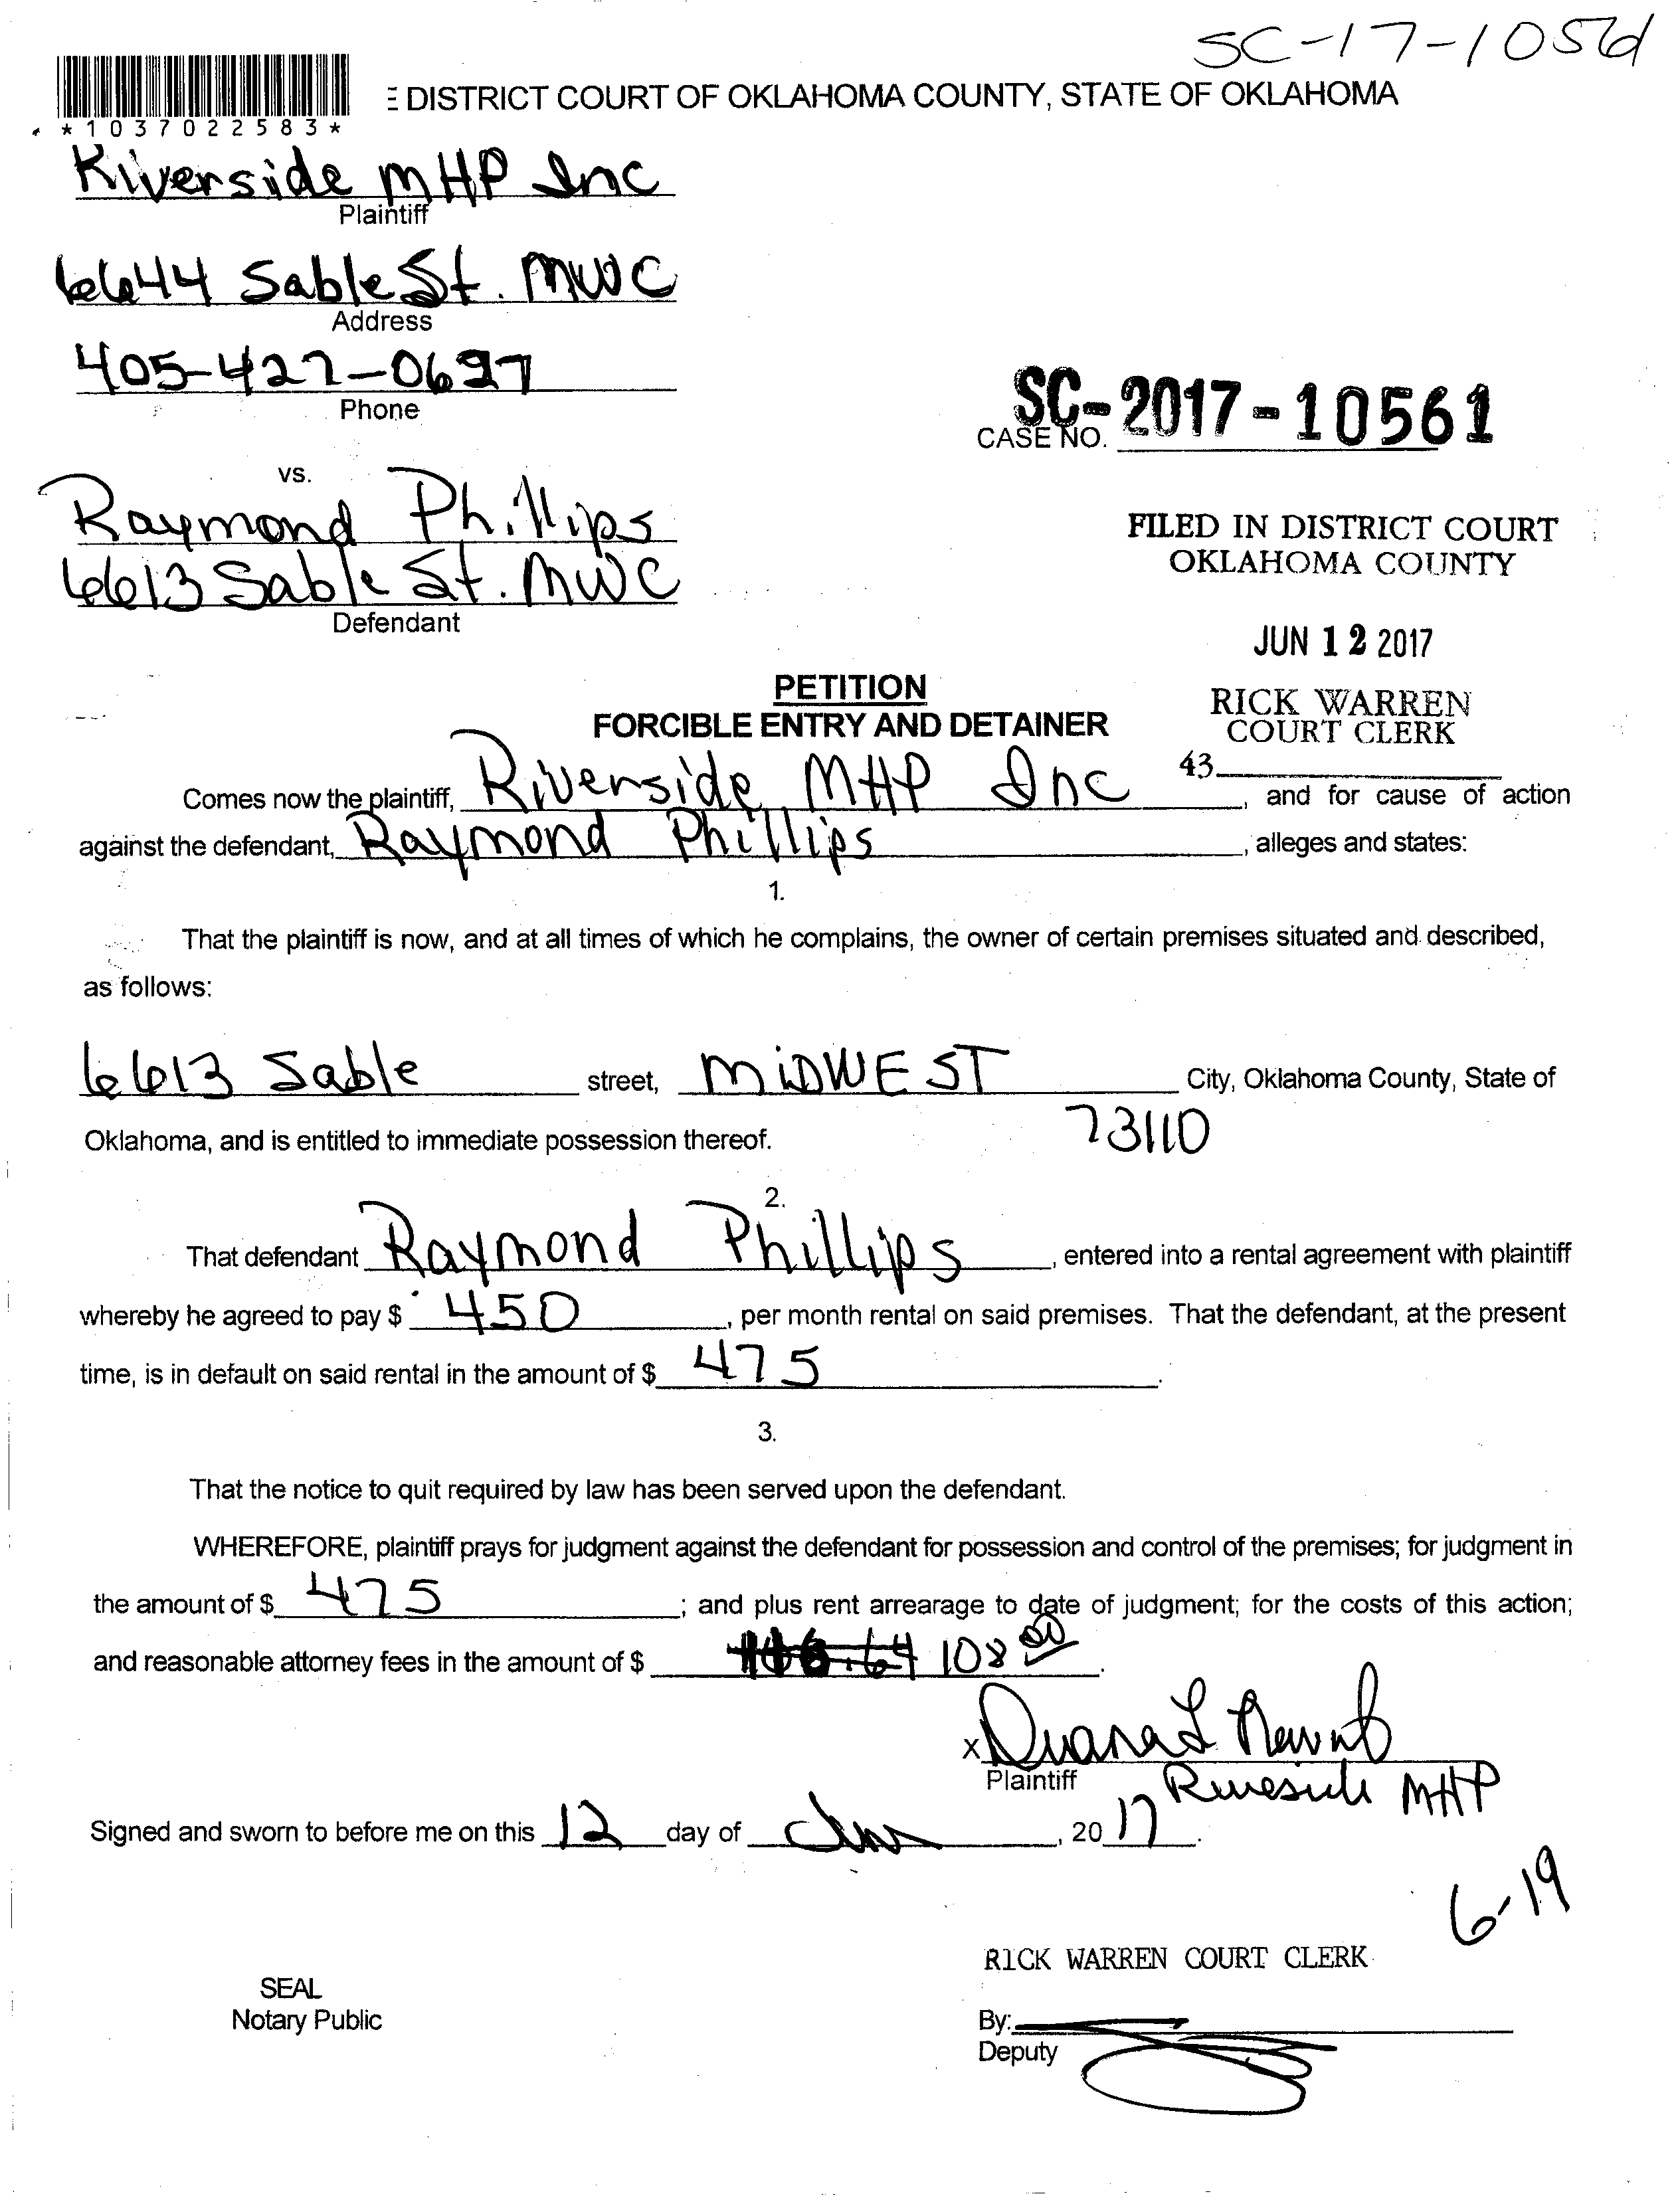 SC-17-10561
*1037022583*
DISTRICT COURT OF OKLAHOMA COUNTY, STATE OF OKLAHOMA
Riverside MHP Inc
Plaintiff
6644 Sable St. MWC
Address
405-427-0697
Phone
SC-2017-10561
CASE NO.
vs.
Raymond Phillips
6613 Sable St. MWC
Defendant
FILED IN DISTRICT COURT
OKLAHOMA COUNTY
JUN 12 2017
RICK WARREN
COURT CLERK
43
PETITION
FORCIBLE ENTRY AND DETAINER
Comes now the plaintiff, Riverside MHP Inc, and for cause of action
against the defendant, Raymond Phillips, alleges and states:
1.
That the plaintiff is now, and at all times of which he complains, the owner of certain premises situated and described,
as follows:
6613 Sable street, MiDWEST City, Oklahoma County, State of
Oklahoma, and is entitled to immediate possession thereof. 73110
2.
That defendant Raymond Phillips, entered into a rental agreement with plaintiff
whereby he agreed to pay $ 450, per month rental on said premises. That the defendant, at the present
time, is in default on said rental in the amount of $ 475.
3.
That the notice to quit required by law has been served upon the defendant.
WHEREFORE, plaintiff prays for judgment against the defendant for possession and control of the premises; for judgment in
the amount of $ 475; and plus rent arrearage to date of judgment; for the costs of this action;
and reasonable attorney fees in the amount of $ 108 00.
X
Plaintiff
Riverside MHP
Signed and sworn to before me on this 12 day of June, 20 17.
6-19
RICK WARREN COURT CLERK
SEAL
Notary Public
By:
Deputy